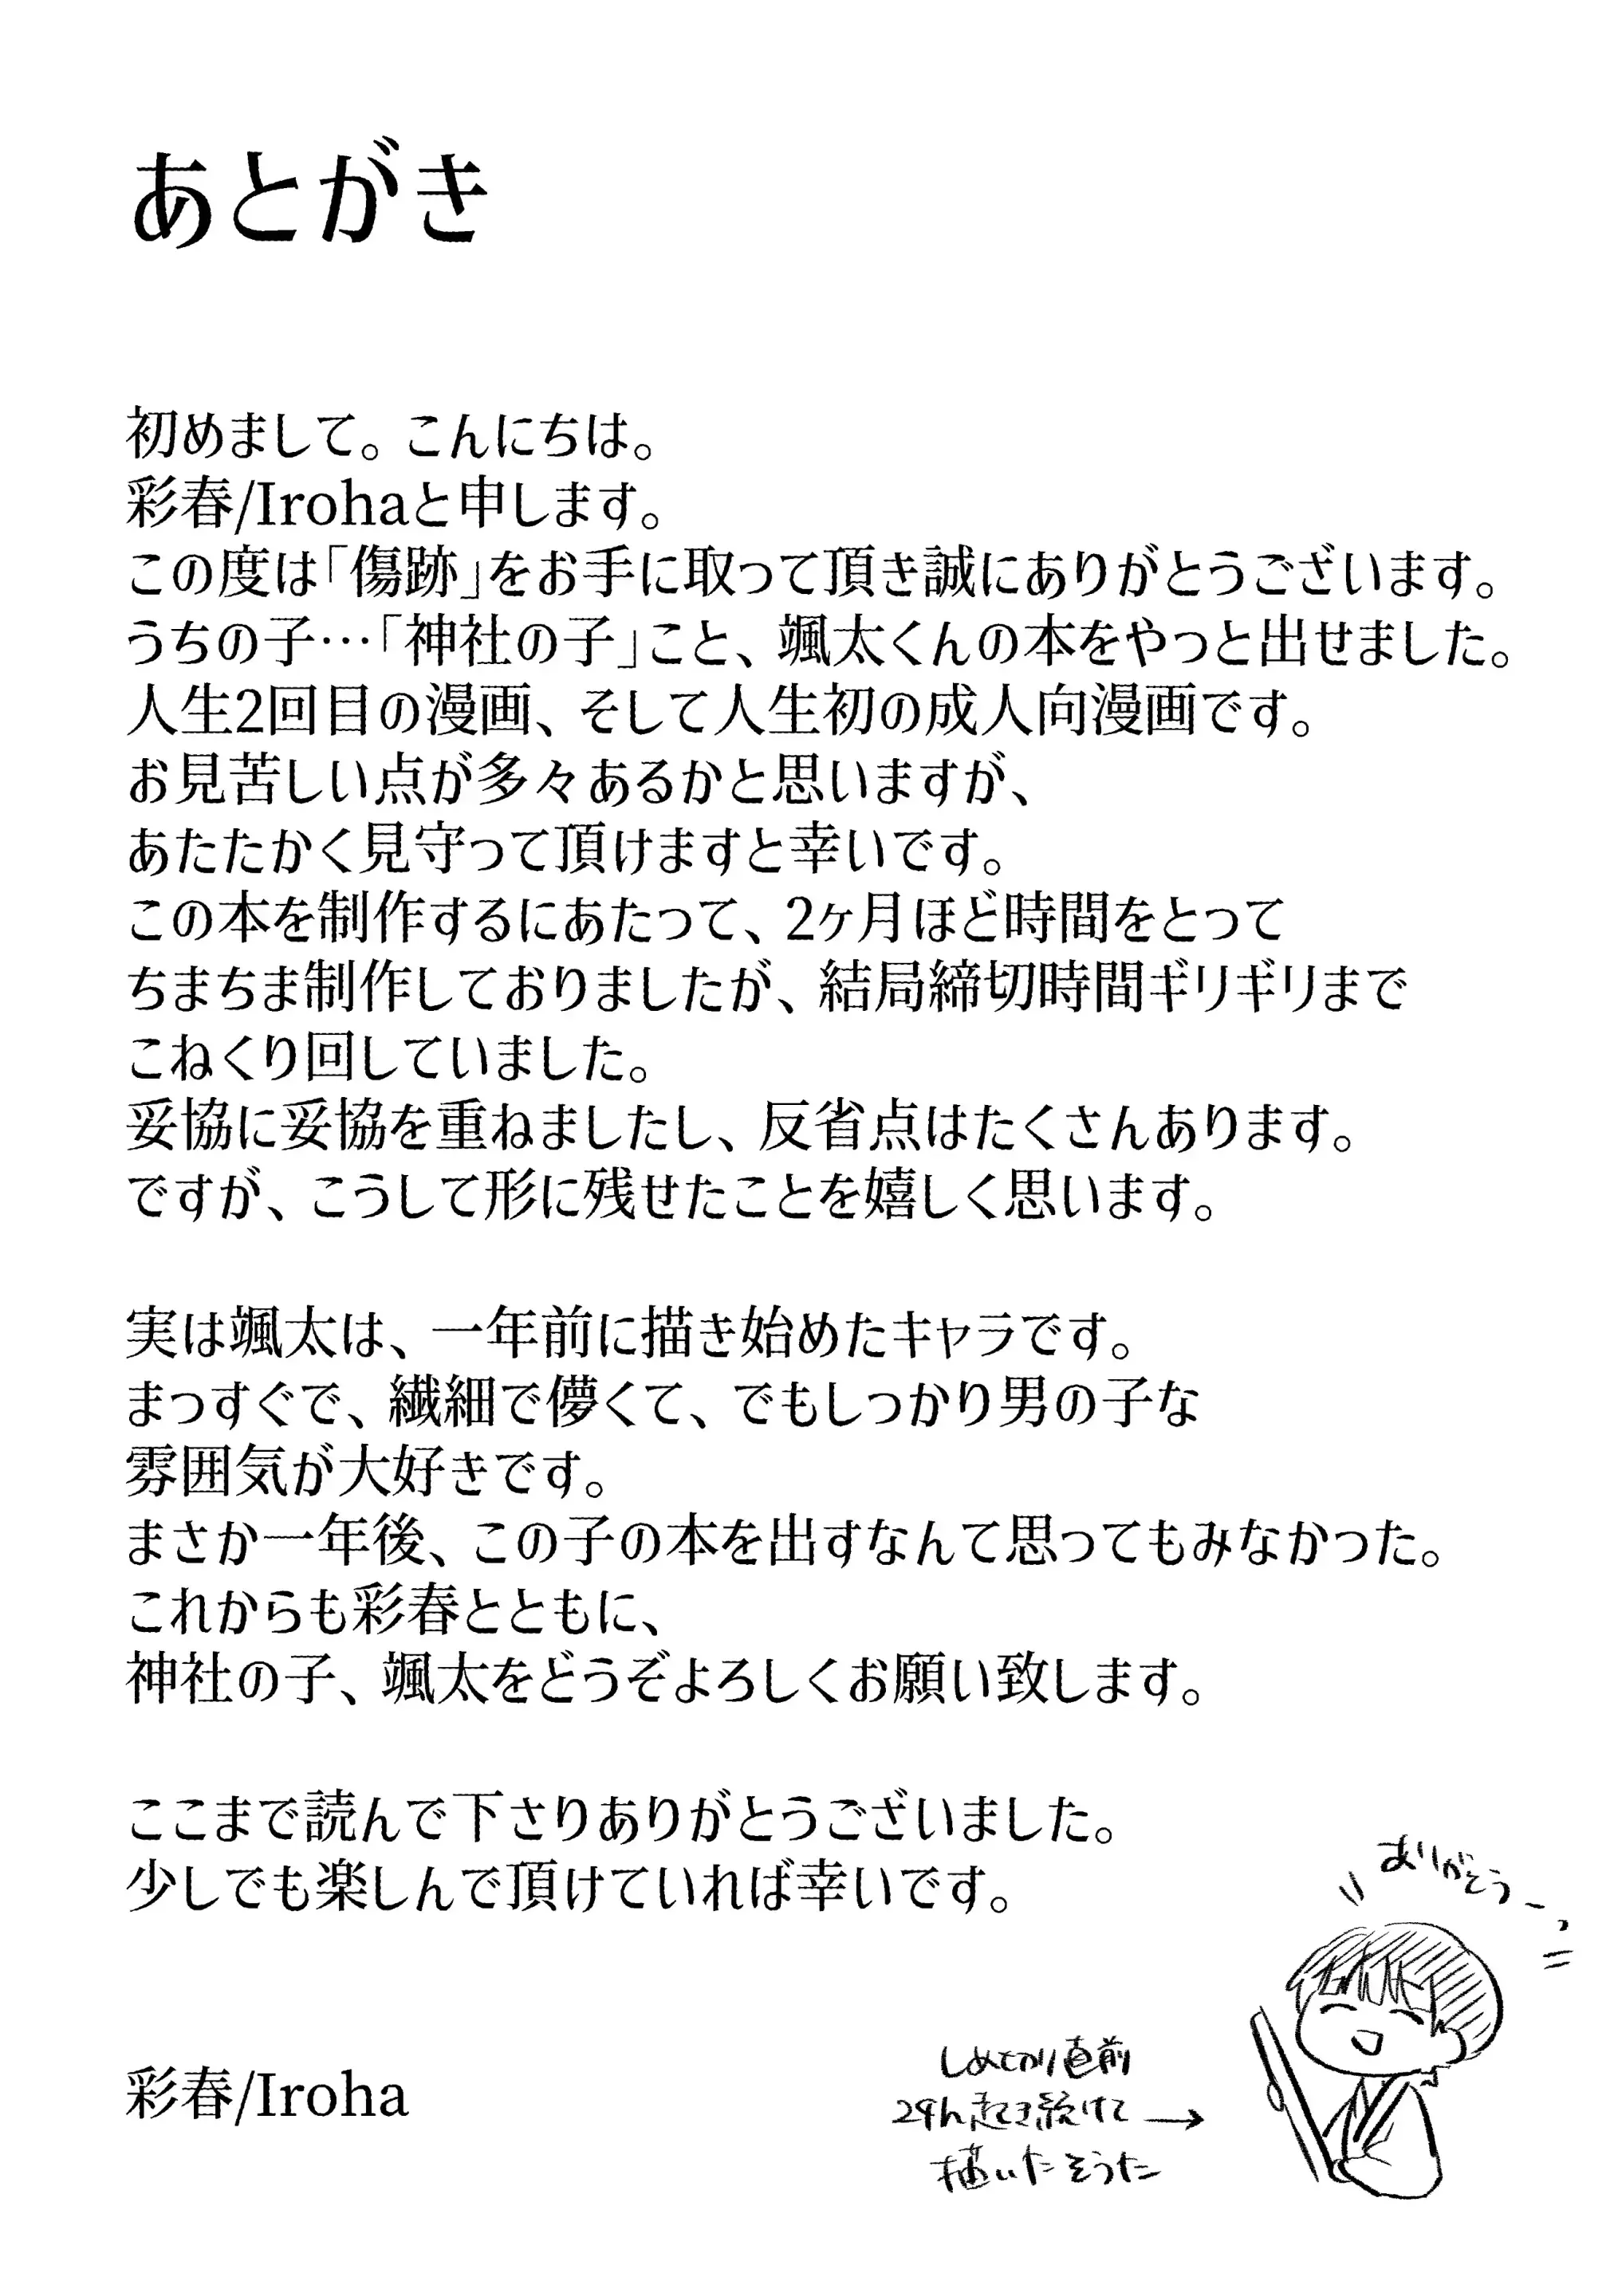 あとがき
初めまして。こんにちは。
彩春/Irohaと申します。
この度は「傷跡」をお手に取って頂き誠にありがとうございます。
うちの子…「神社の子」こと、颯太くんの本をやっと出せました。
人生2回目の漫画、そして人生初の成人向漫画です。
お見苦しい点が多々あるかと思いますが、
あたたかく見守って頂けますと幸いです。
この本を制作するにあたって、2ヶ月ほど時間をとって
ちまちま制作しておりましたが、結局締切時間ギリギリまで
こねくり回していました。
妥協に妥協を重ねましたし、反省点はたくさんあります。
ですが、こうして形に残せたことを嬉しく思います。
実は颯太は、一年前に描き始めたキャラです。
まっすぐで、繊細で儚くて、でもしっかり男の子な
雰囲気が大好きです。
まさか一年後、この子の本を出すなんて思ってもみなかった。
これからも彩春とともに、
神社の子、颯太をどうぞよろしくお願い致します。
ここまで読んで下さりありがとうございました。
少しでも楽しんで頂けていれば幸いです。
ありがとう~っ
しめきり直前
24h起き続けて→
描いたそうた
彩春/Iroha